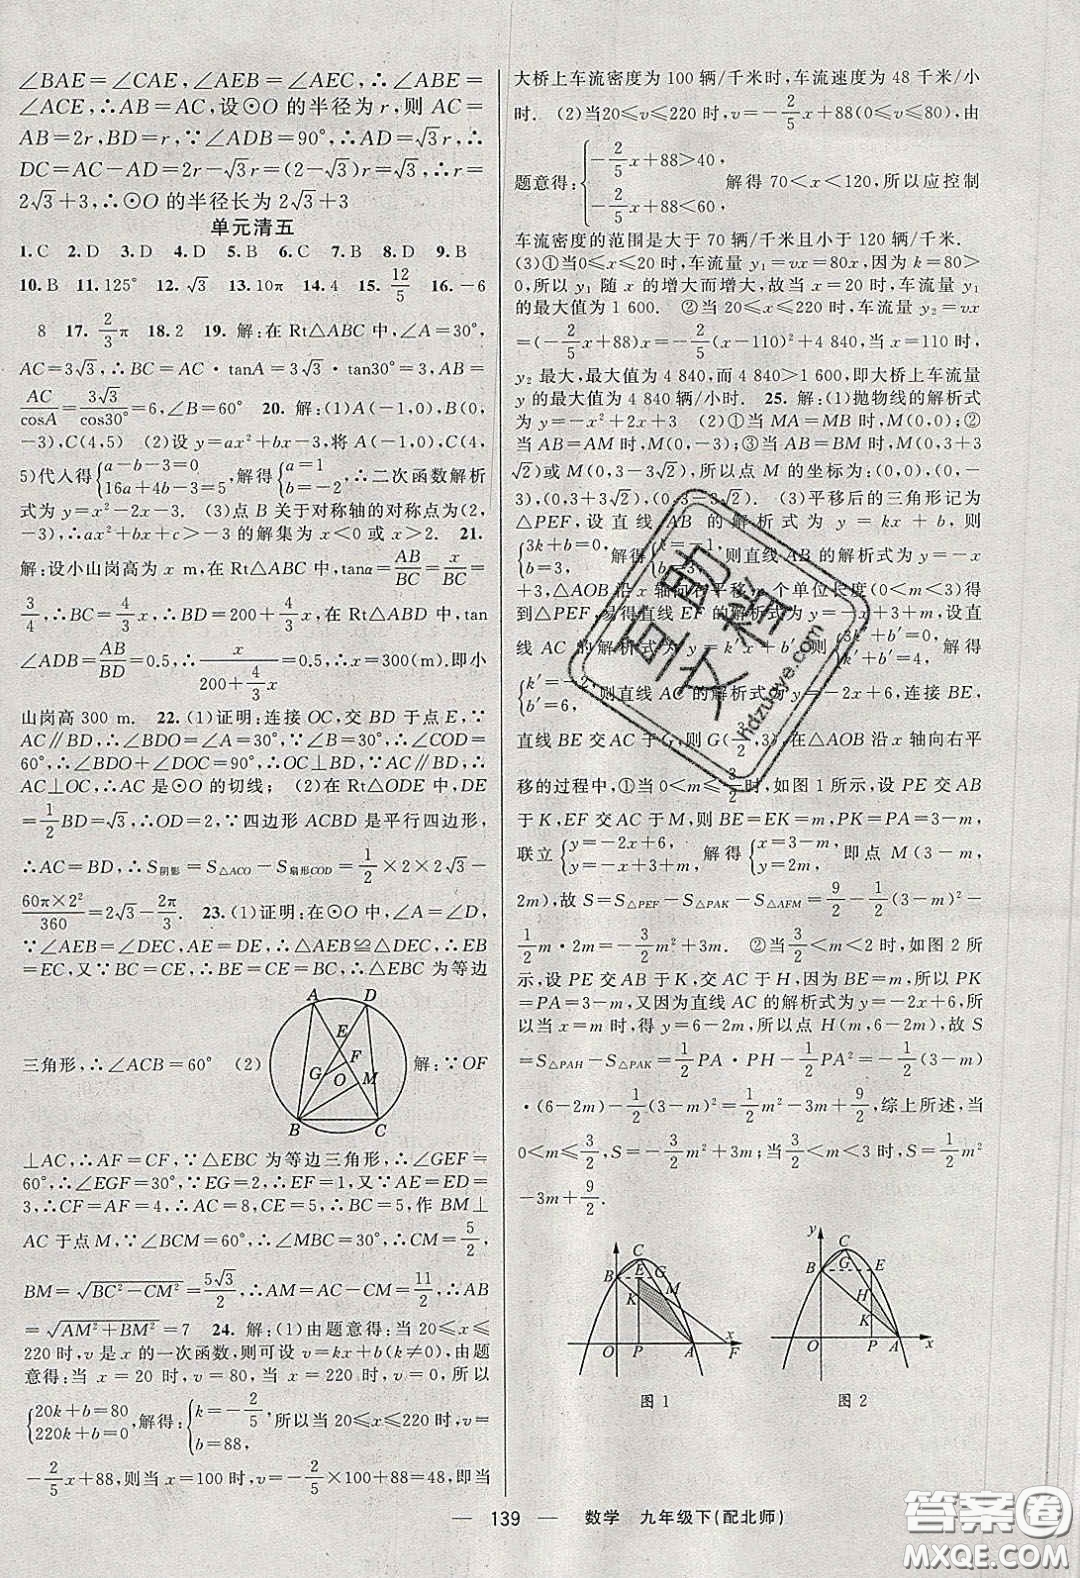 ∠BAE＝∠CAE，∠AEB＝∠AEC，∴∠ABE＝
∠ACE，∴AB＝AC，设⊙O的半径为r，则 AC＝
AB＝2r，BD＝r，∵∠ADB＝90°，∴AD＝√3r，∴
DC＝AC－AD＝2r－√3r＝(2－√3)r＝√3，∴r＝
2√3＋3，∴⊙O的半径长为2√3＋3
单元清五
1.C 2.D 3.D 4.D 5.B 6.C 7.B 8.D 9.B
10.B 11.125° 12.√3 13.10π 14.4 15.12/5 16.－6
8 17.2/3π 18.2 19.解：在Rt△ABC中，∠A＝30°，
AC＝3√3，∴BC＝AC·tanA＝3√3·tan30°＝3，AB＝
AC/cosA＝3√3/cos30°＝6，∠B＝60° 20.解：(1)A(－1，0)，B(0，
－3)，C(4，5) (2)设y＝ax²＋bx－3，将A(－1，0)，C(4，
5)代入得{a－b－3＝0 16a＋4b－3＝5，解得{a＝1 b＝－2，∴二次函数解析
式为y＝x²－2x－3. (3)点B关于对称轴的对称点为(2，
－3)，∴ax²＋bx＋c＞－3的解集为x＜0或x＞2. 21.
解：设小山岗高为x m，在Rt△ABC中，tanα＝AB/BC＝x/BC＝
3/4，∴BC＝4/3x，∴BD＝200＋4/3x，在Rt△ABD中，tan
∠ADB＝AB/BD＝0.5，∴x/(200＋4/3x)＝0.5，∴x＝300(m)，即小
山岗高300 m. 22.(1)证明：连接OC，交BD于点E，∵
AC∥BD，∴∠BDO＝∠A＝30°，∵∠B＝30°，∴∠COD＝
60°，∴∠BDO＋∠DOC＝90°，∴OC⊥BD，∵AC∥BD，∴
AC⊥OC，∴AC是⊙O的切线； (2)在Rt△ODE中，DE
＝1/2BD＝√3，∴OD＝2，∵四边形ACBD是平行四边形，
∴AC＝BD，∴S阴影＝S△ACO－S扇形COD＝1/2×2×2√3－
60π×2²/360＝2√3－2π/3. 23.(1)证明：在⊙O中，∠A＝∠D，
∵∠AEB＝∠DEC，AE＝DE，∴△AEB≌△DEC，∴EB
＝EC，又∵BC＝CE，∴BE＝CE＝BC，∴△EBC为等边
三角形，∴∠ACB＝60° (2) 解：∵OF
A D
E
F
G O M
B C
⊥AC，∴AF＝CF，∵△EBC为等边三角形，∴∠GEF＝
60°，∴∠EGF＝30°，∵EG＝2，∴EF＝1，又∵AE＝ED＝
3，∴CF＝AF＝4，∴AC＝8，EC＝5，∴BC＝5，作BM⊥
AC于点M，∵∠BCM＝60°，∴∠MBC＝30°，∴CM＝5/2，
BM＝√(BC²－CM²)＝5√3/2，∴AM＝AC－CM＝11/2，∴AB
＝√(AM²＋BM²)＝7 24.解：(1)由题意得：当20≤x≤
220时，v是x的一次函数，则可设v＝kx＋b(k≠0)，由题
意得：当x＝20时，v＝80，当x＝220时，v＝0，所以
{20k＋b＝80 220k＋b＝0，解得：{k＝－2/5，b＝88，所以当20≤x≤220时，v＝
－2/5x＋88，则当x＝100时，v＝－2/5×100＋88＝48，即当
大桥上车流密度为100辆/千米时，车流速度为48千米/小
时. (2)当20≤v≤220时，v＝－2/5x＋88(0≤v≤80)，由
题意得：{－2/5x＋88＞40，－2/5x＋88＜60，解得70＜x＜120，所以应控制
车流密度的范围是大于70辆/千米且小于120辆/千米.
(3)①当0≤x≤20时，车流量y₁＝vx＝80x，因为k＝80＞
0，所以y₁随x的增大而增大，故当x＝20时，车流量y₁
的最大值为1 600. ②当20≤x≤220时，车流量y₂＝vx
＝(－2/5x＋88)x＝－2/5(x－110)²＋4 840，当x＝110时，
y₂最大，最大值为4 840，而4 840＞1 600，即大桥上车流量
y的最大值为4 840辆/小时. 25.解：(1)抛物线的解析式
为y＝－x²＋2x＋3 (2)①当MA＝MB时，M(0，0)；②
当AB＝AM时，M(0，－3)；③当AB＝BM时，M(0，3＋3
√2)或M(0，3－3√2)，所以点M的坐标为：(0，0)，(0，
－3)，(0，3＋3√2)，(0，3－3√2) (3)平移后的三角形记为
△PEF，设直线AB的解析式为y＝kx＋b，则
{3k＋b＝0，b＝3，解得{k＝－1，b＝3，则直线AB的解析式为y＝－x
＋3，△AOB沿x轴向右平移m个单位长度(0＜m＜3)得
到△PEF，易得直线EF的解析式为y＝－x＋3＋m，设直
线AC的解析式为y＝k′x＋b′，则{3k′＋b′＝0，k′＋b′＝4，解得
{k′＝－2，b′＝6，则直线AC的解析式为y＝－2x＋6，连接BE，
直线BE交AC于G，则G(3/2，3)，在△AOB沿x轴向右平
移的过程中，①当0＜m≤3/2时，如图1所示，设PE交AB
于K，EF交AC于M，则BE＝EK＝m，PK＝PA＝3－m，
联立{y＝－2x＋6，y＝－x＋3＋m，解得{x＝3－m，y＝2m，即点M(3－m，
2m)，故S＝S△PEF－S△PAK－S△AFM＝9/2－1/2(3－m)²－
1/2m·2m＝－3/2m²＋3m. ②当3/2＜m＜2时，如图2所
示，设PE交AB于K，交AC于H，因为BE＝m，所以PK
＝PA＝3－m，又因为直线AC的解析式为y＝－2x＋6，所
以当x＝m时，得y＝6－2m，所以点H(m，6－2m)，故S
＝S△PAH－S△PAK＝1/2PA·PH－1/2PA²＝－1/2(3－m)
·(6－2m)－1/2(3－m)²＝1/2m²－3m＋9/2，综上所述，当
0＜m≤3/2时，S＝－3/2m²＋3m；当3/2＜m＜3时，S＝1/2m²
－3m＋9/2.
C
B E G
K M
O P A F x
图1
y C
B G E
H
K
O P A x
图2
139 数学 九年级下(配北师)
互助文档
hdzuoye.com
答案圈
MXQE.COM